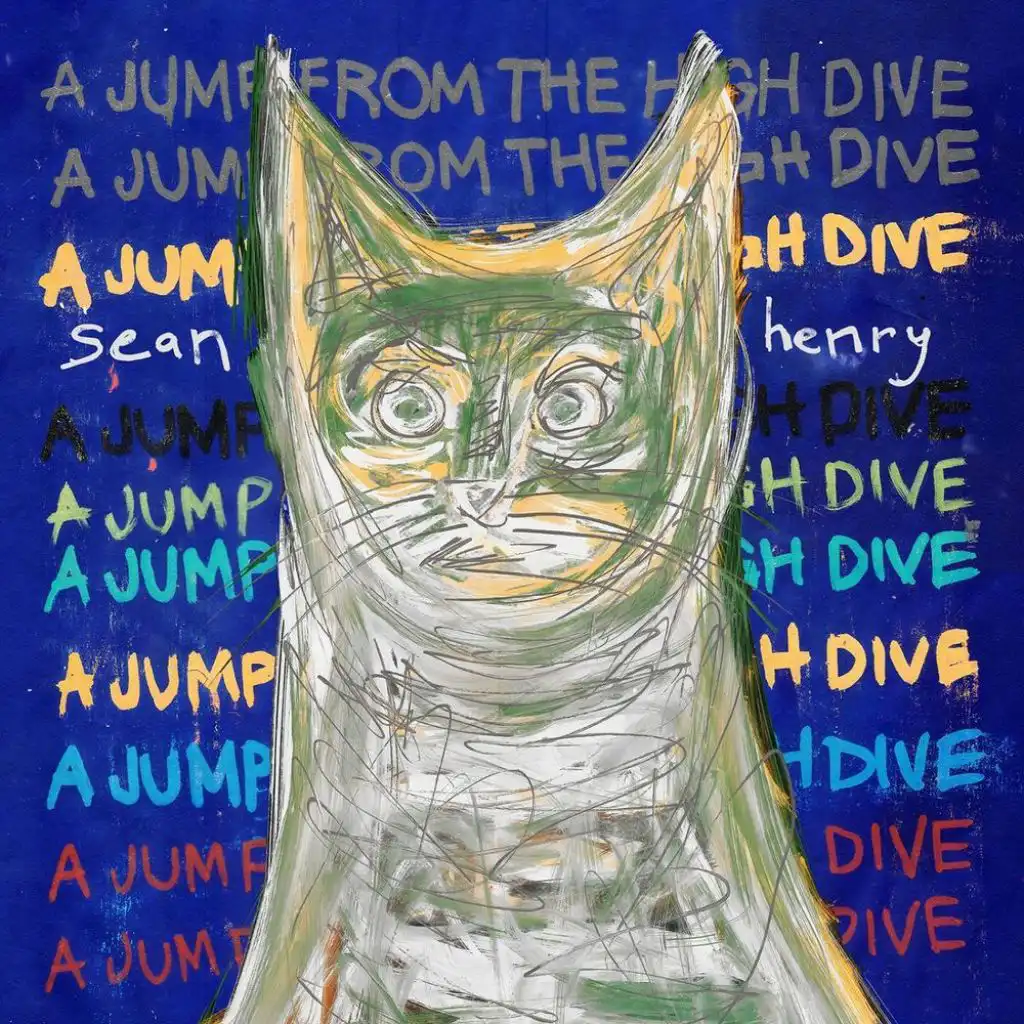 A JUMP FROM THE HIGH DIVE
A JUMP FROM THE HIGH DIVE
A JUM GH DIVE
sean henry
A JUMP GH DIVE
A JUMP GH DIVE
A JUMP GH DIVE
A JUMP H DIVE
A JUMP H DIVE
A JUMP DIVE
A JUMP DIVE